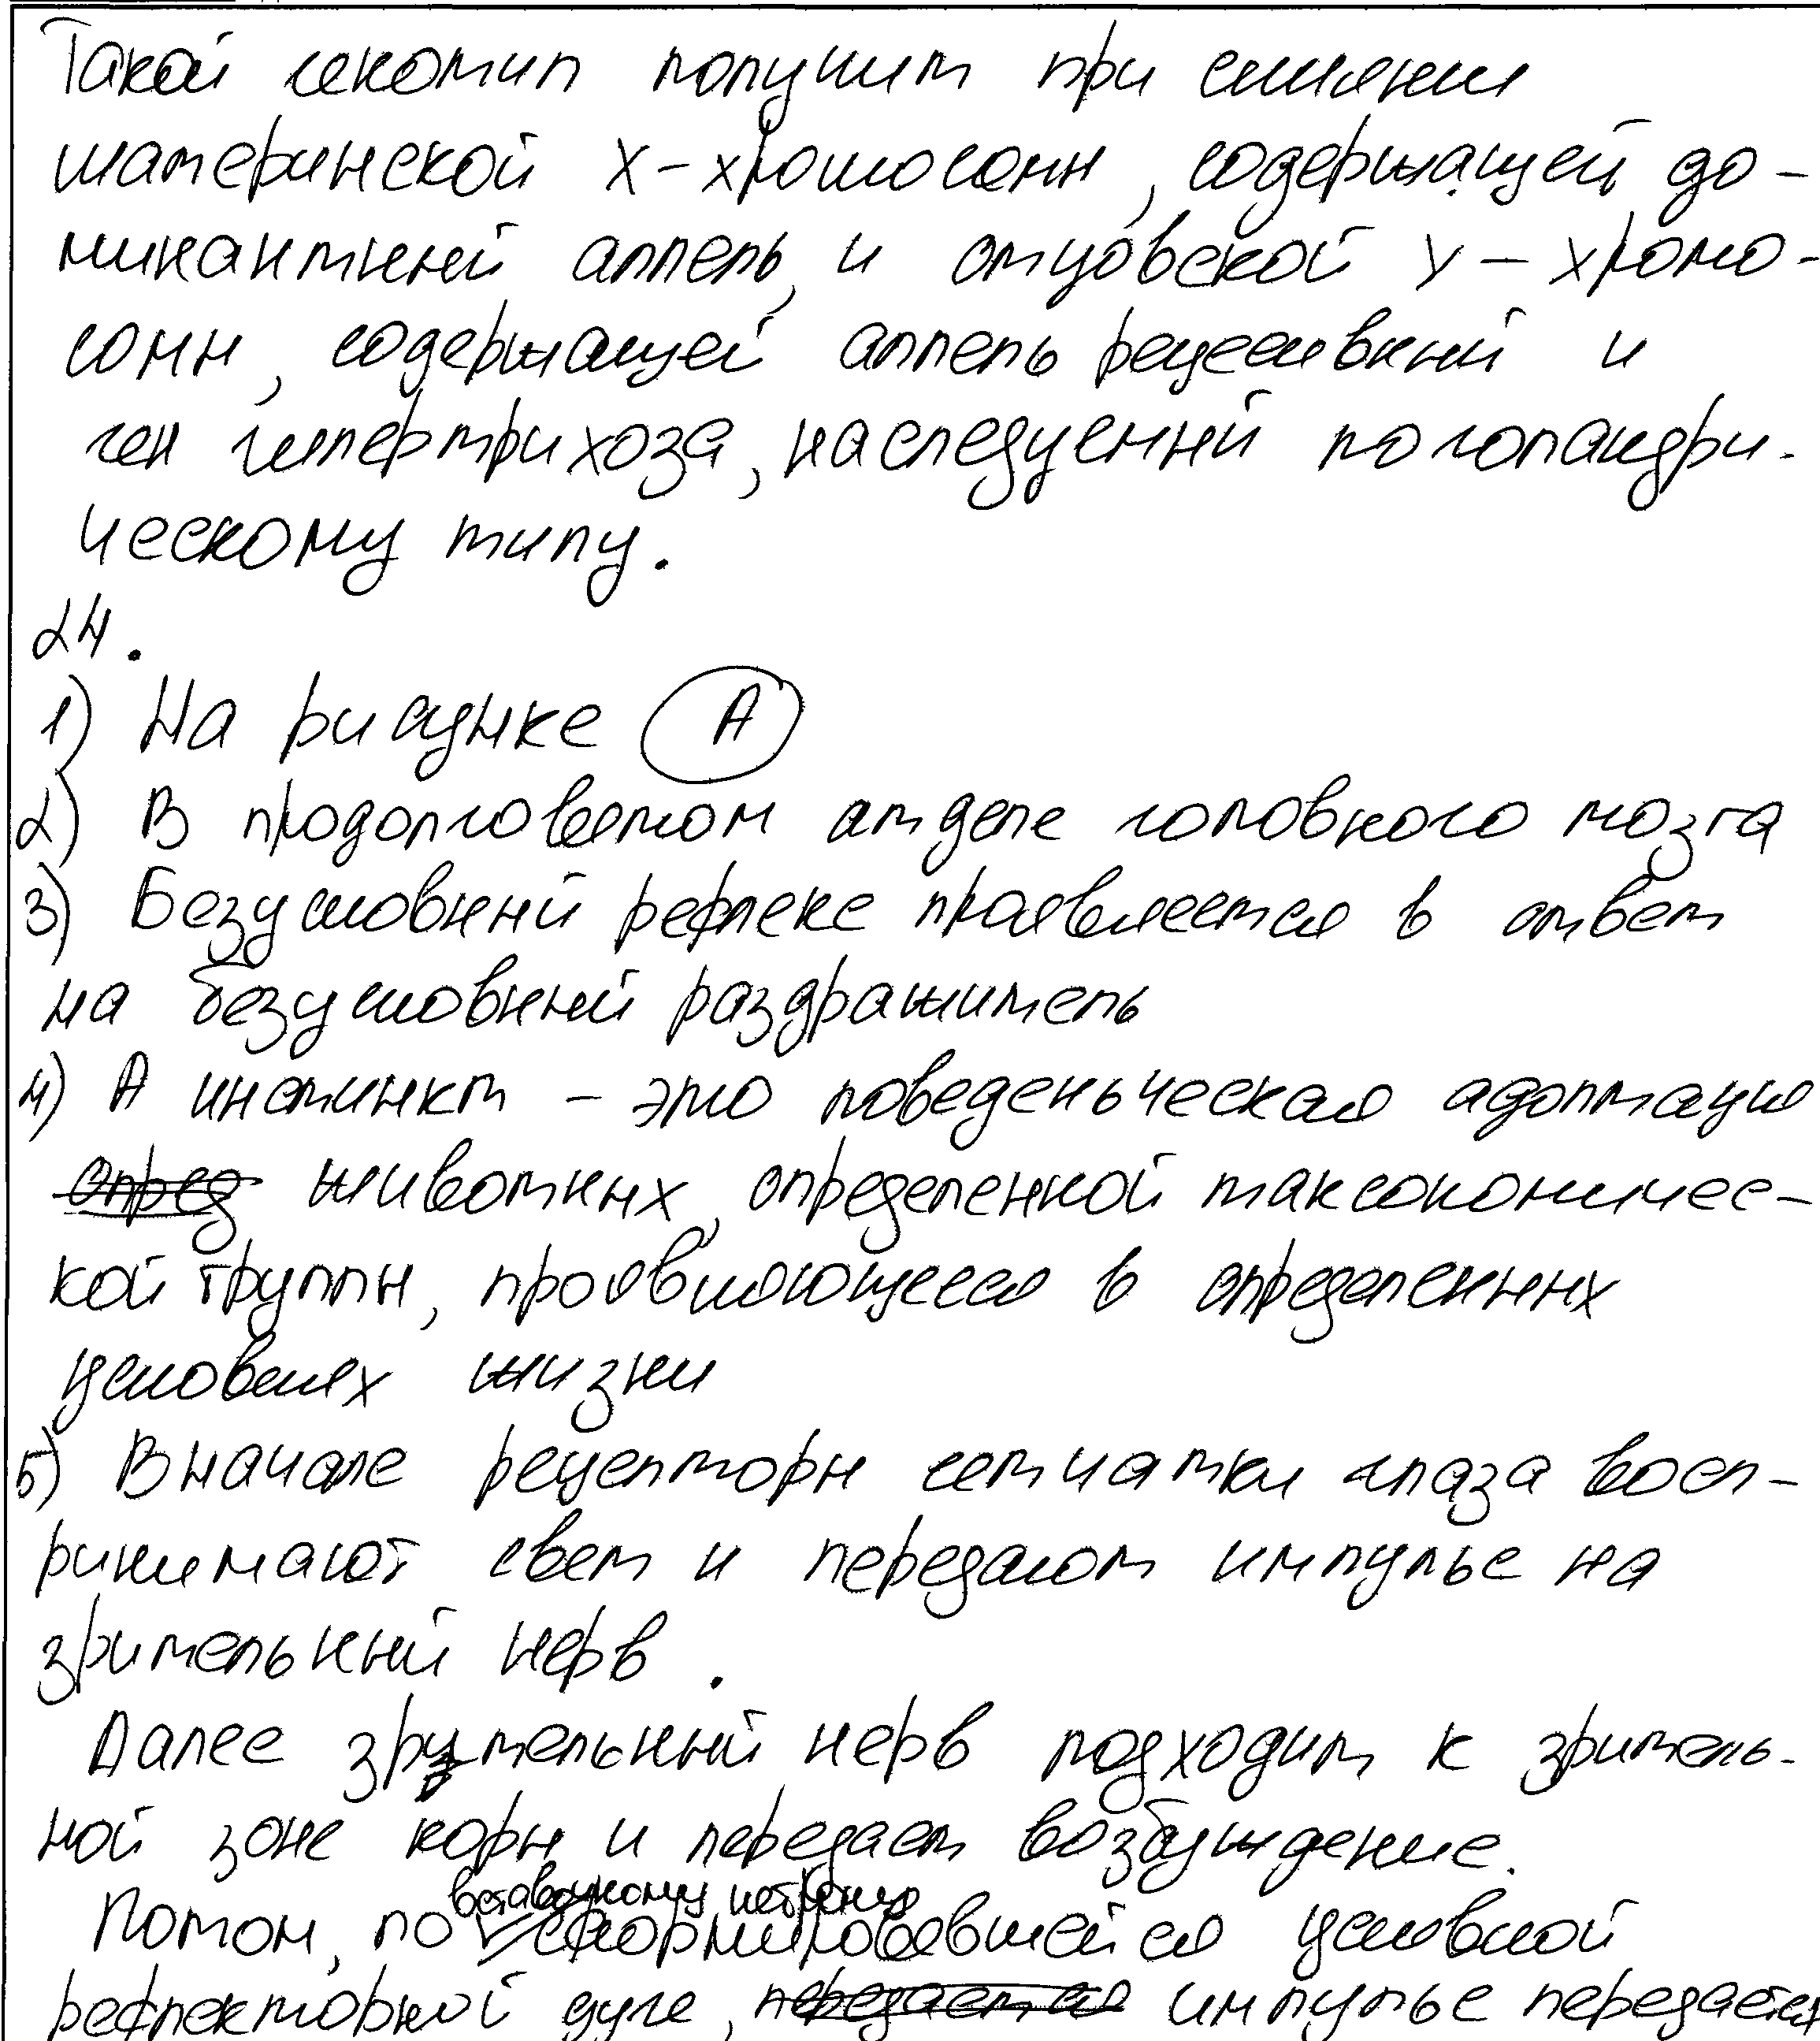 Такой генотип получим при слиянии
материнской X-хромосомы, содержащей до-
минантный аллель, и отцовской Y-хромо-
сомы, содержащей аллель рецессивный и
ген гипертрихоза, наследуемый по голандри-
ческому типу.
24.
1) На рисунке А
2) В продолговатом отделе головного мозга
3) Безусловный рефлекс проявляется в ответ
на безусловный раздражитель
4) А инстинкт - это поведеньческая адоптация
опред животных, определенной таксономичес-
кой группы, проявляющееся в определенных
условиях жизни
5) Вначале рецепторы сетчатки глаза восп-
ринимают свет и передают импульс на
зрительный нерв.
Далее зрительный нерв подходит к зритель-
ной зоне коры и передает возбуждение.
вставочному нейрону
Потом, по сформировавшейся условной
рефлекторной дуге, передается импульс передается